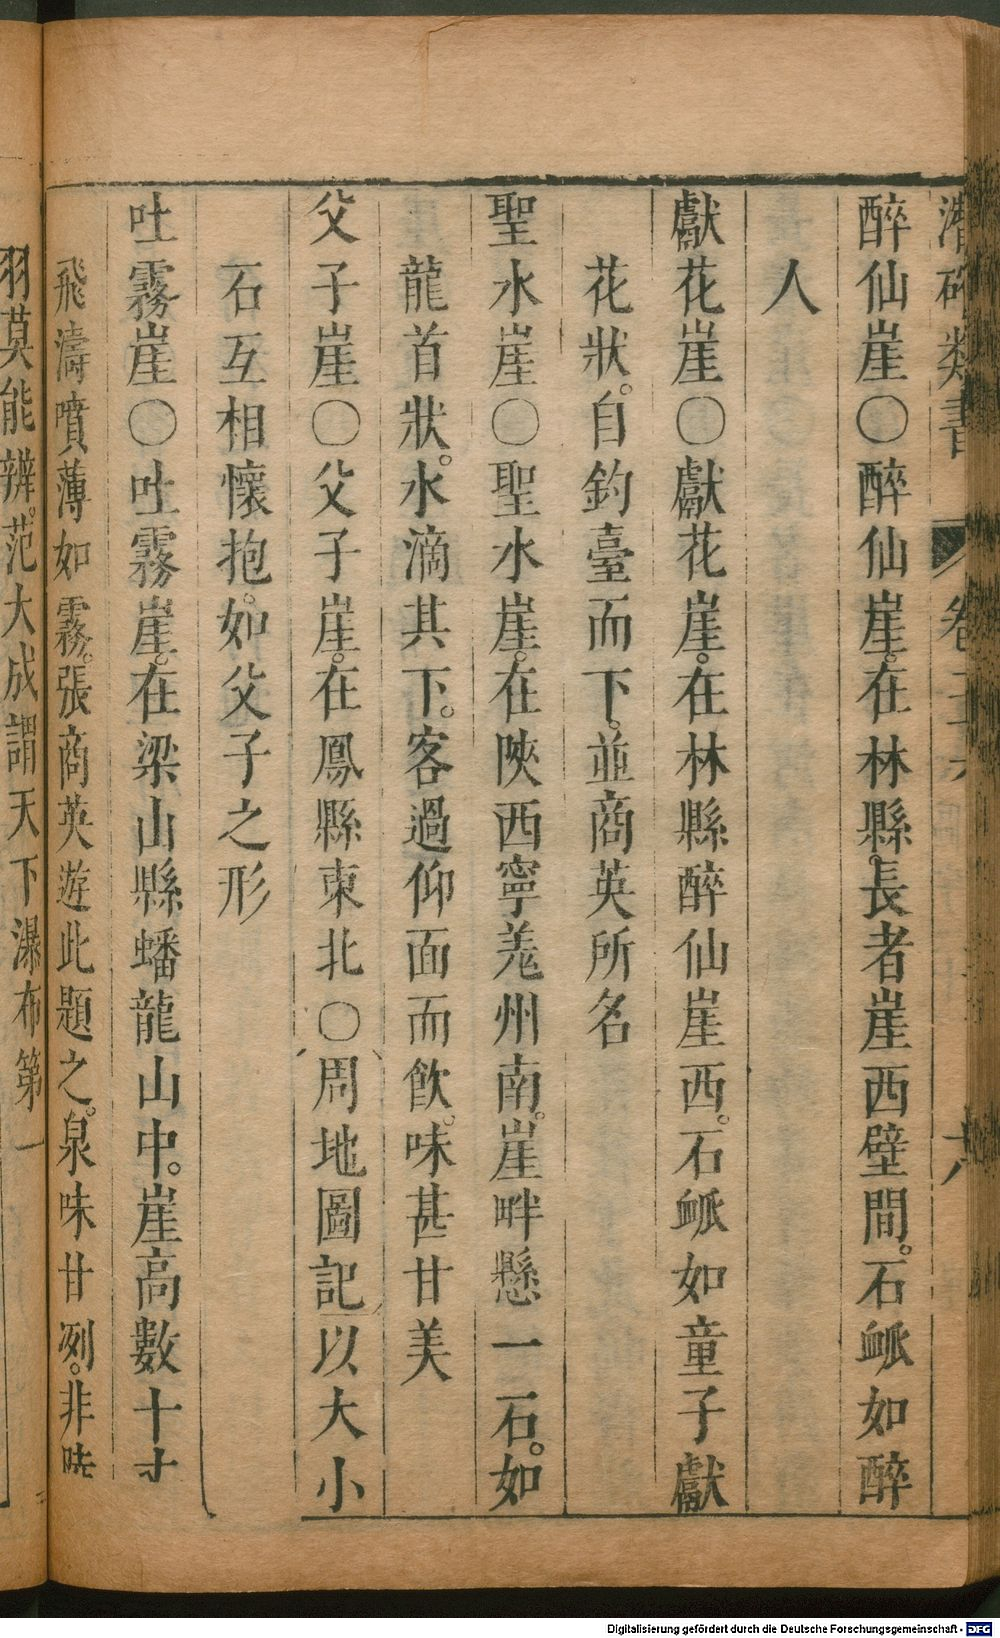 潛確類書 卷 六
醉仙崖〇醉仙崖。在林縣。長者崖西壁間。石䘑如醉
人
獻花崖〇獻花崖。在林縣醉仙崖西。石䘑如童子獻
花狀。自釣臺而下。並商英所名
聖水崖〇聖水崖。在陝西寧羗州南。崖畔懸一石。如
龍首狀。水滴其下。客過仰面而飲。味甚甘美
父子崖〇父子崖。在鳳縣東北〇周地圖記以大小
石互相懷抱。如父子之形
吐霧崖〇吐霧崖。在梁山縣蟠龍山中。崖高數十丈
飛濤噴薄如霧。張商英遊此題之。泉味甘冽。非陸
羽莫能辨。范大成謂天下瀑布第一
Digitalisierung gefördert durch die Deutsche Forschungsgemeinschaft - DFG